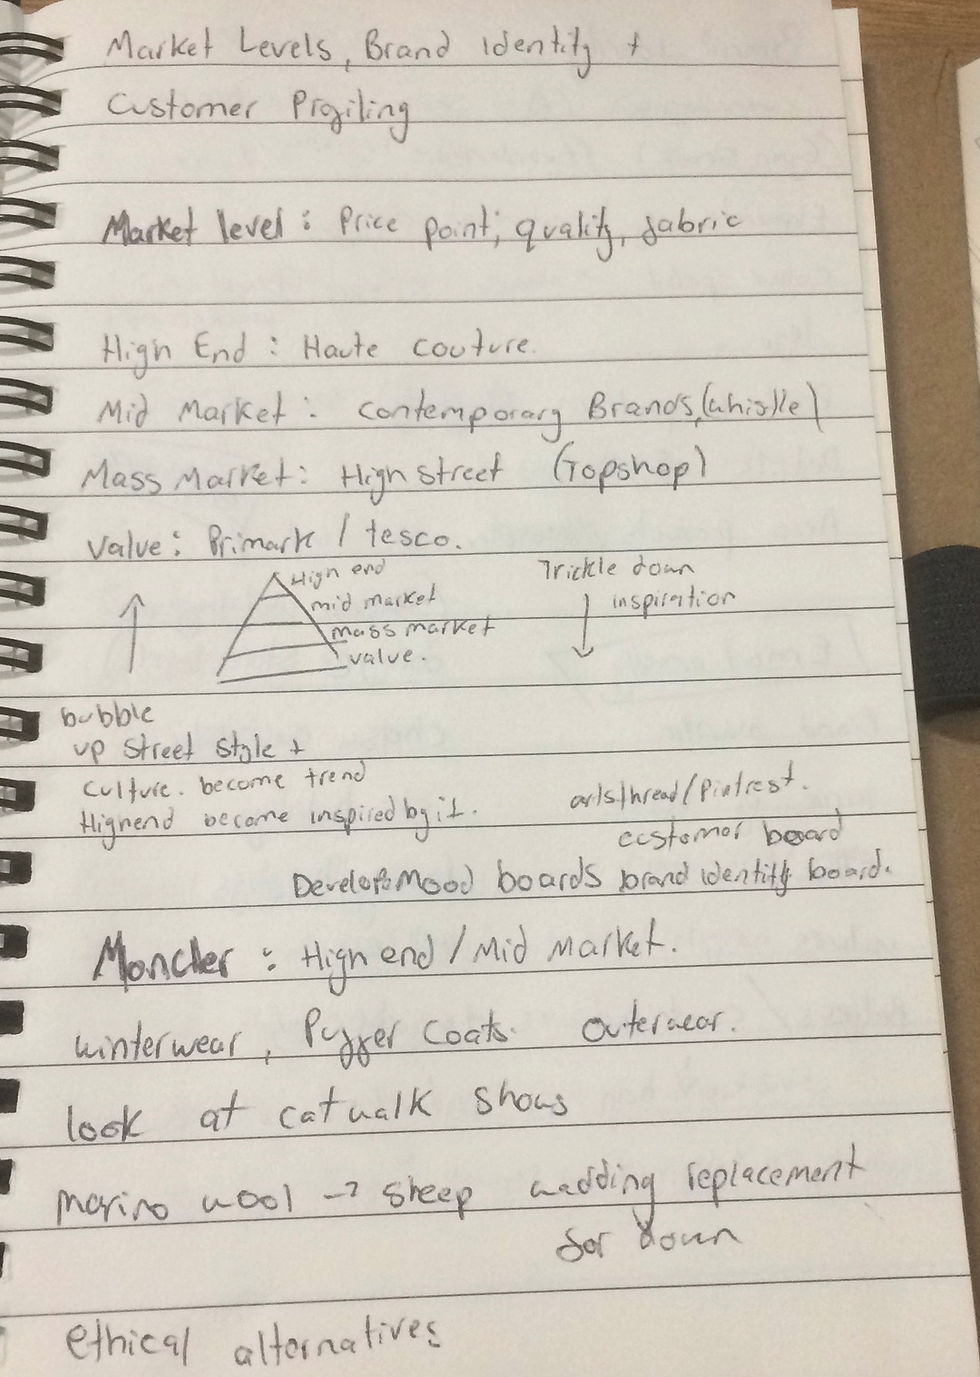 Market Levels, Brand identity +
Customer Profiling
Market level : Price point, quality, fabric
High End : Haute couture.
Mid Market : Contemporary Brands, (whistle)
Mass Market : High street (Topshop)
Value : Primark / tesco.
High end
mid market
mass market
value.
Trickle down
inspiration
bubble
up street style +
culture. become trend
Highend become inspired by it.
artsthread/Pintrest.
customer board
Develop Mood boards brand identity board.
Moncler : High end / Mid market.
winterwear, Puffer Coats. Outerwear.
look at catwalk shows
Marino wool → sheep wadding replacement
for down
ethical alternatives